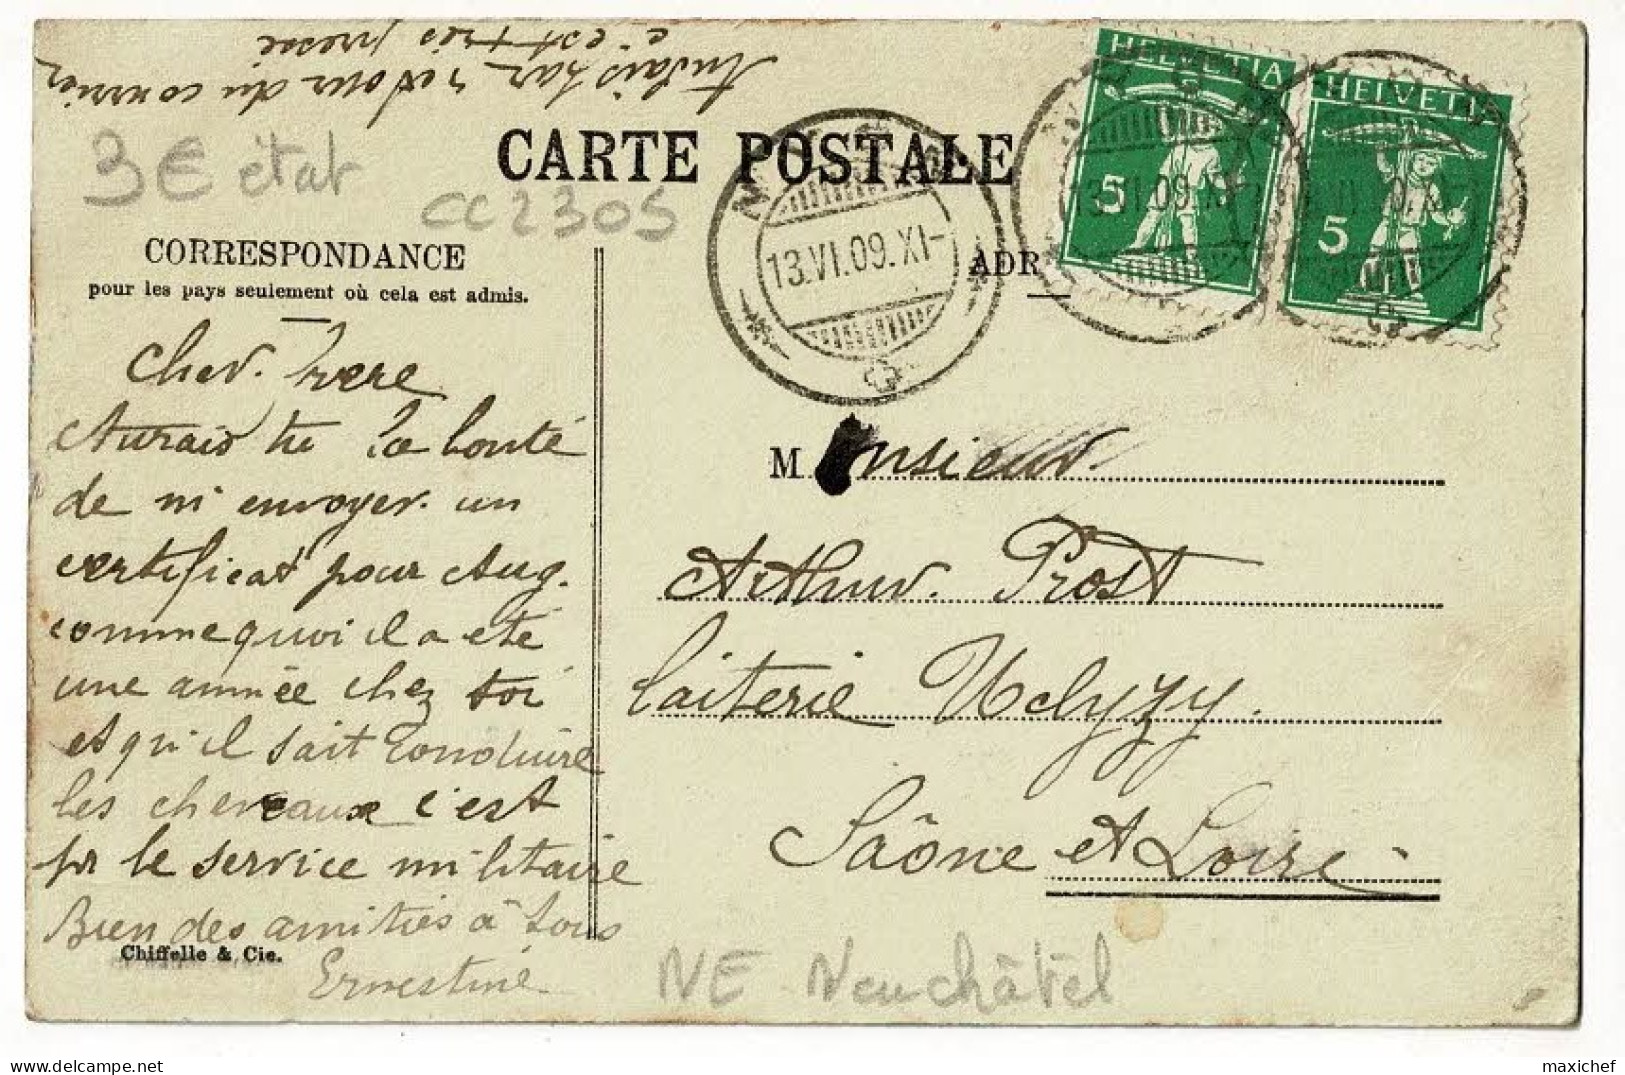 Aurais par retour du courrier
c'est très pressé
3€ état
CC2305
CARTE POSTALE
HELVETIA
5
HELVETIA
5
13.VI.09.XI-
13.VI.09.XI
CORRESPONDANCE
pour les pays seulement où cela est admis.
ADR
Cher. frere
Aurais tu la bonté
de m envoyer. un
certificat pour Aug.
comme quoi il a été
une année chez toi
et qu'il sait conduire
les chereaux c'est
pr le service militaire
Bien des amitiés à tous
Ernestine
Chiffelle & Cie.
Monsieur.
Arthur. Prost
laiterie Uchyzy.
Saône et Loire
NE Neuchâtel
maxichef